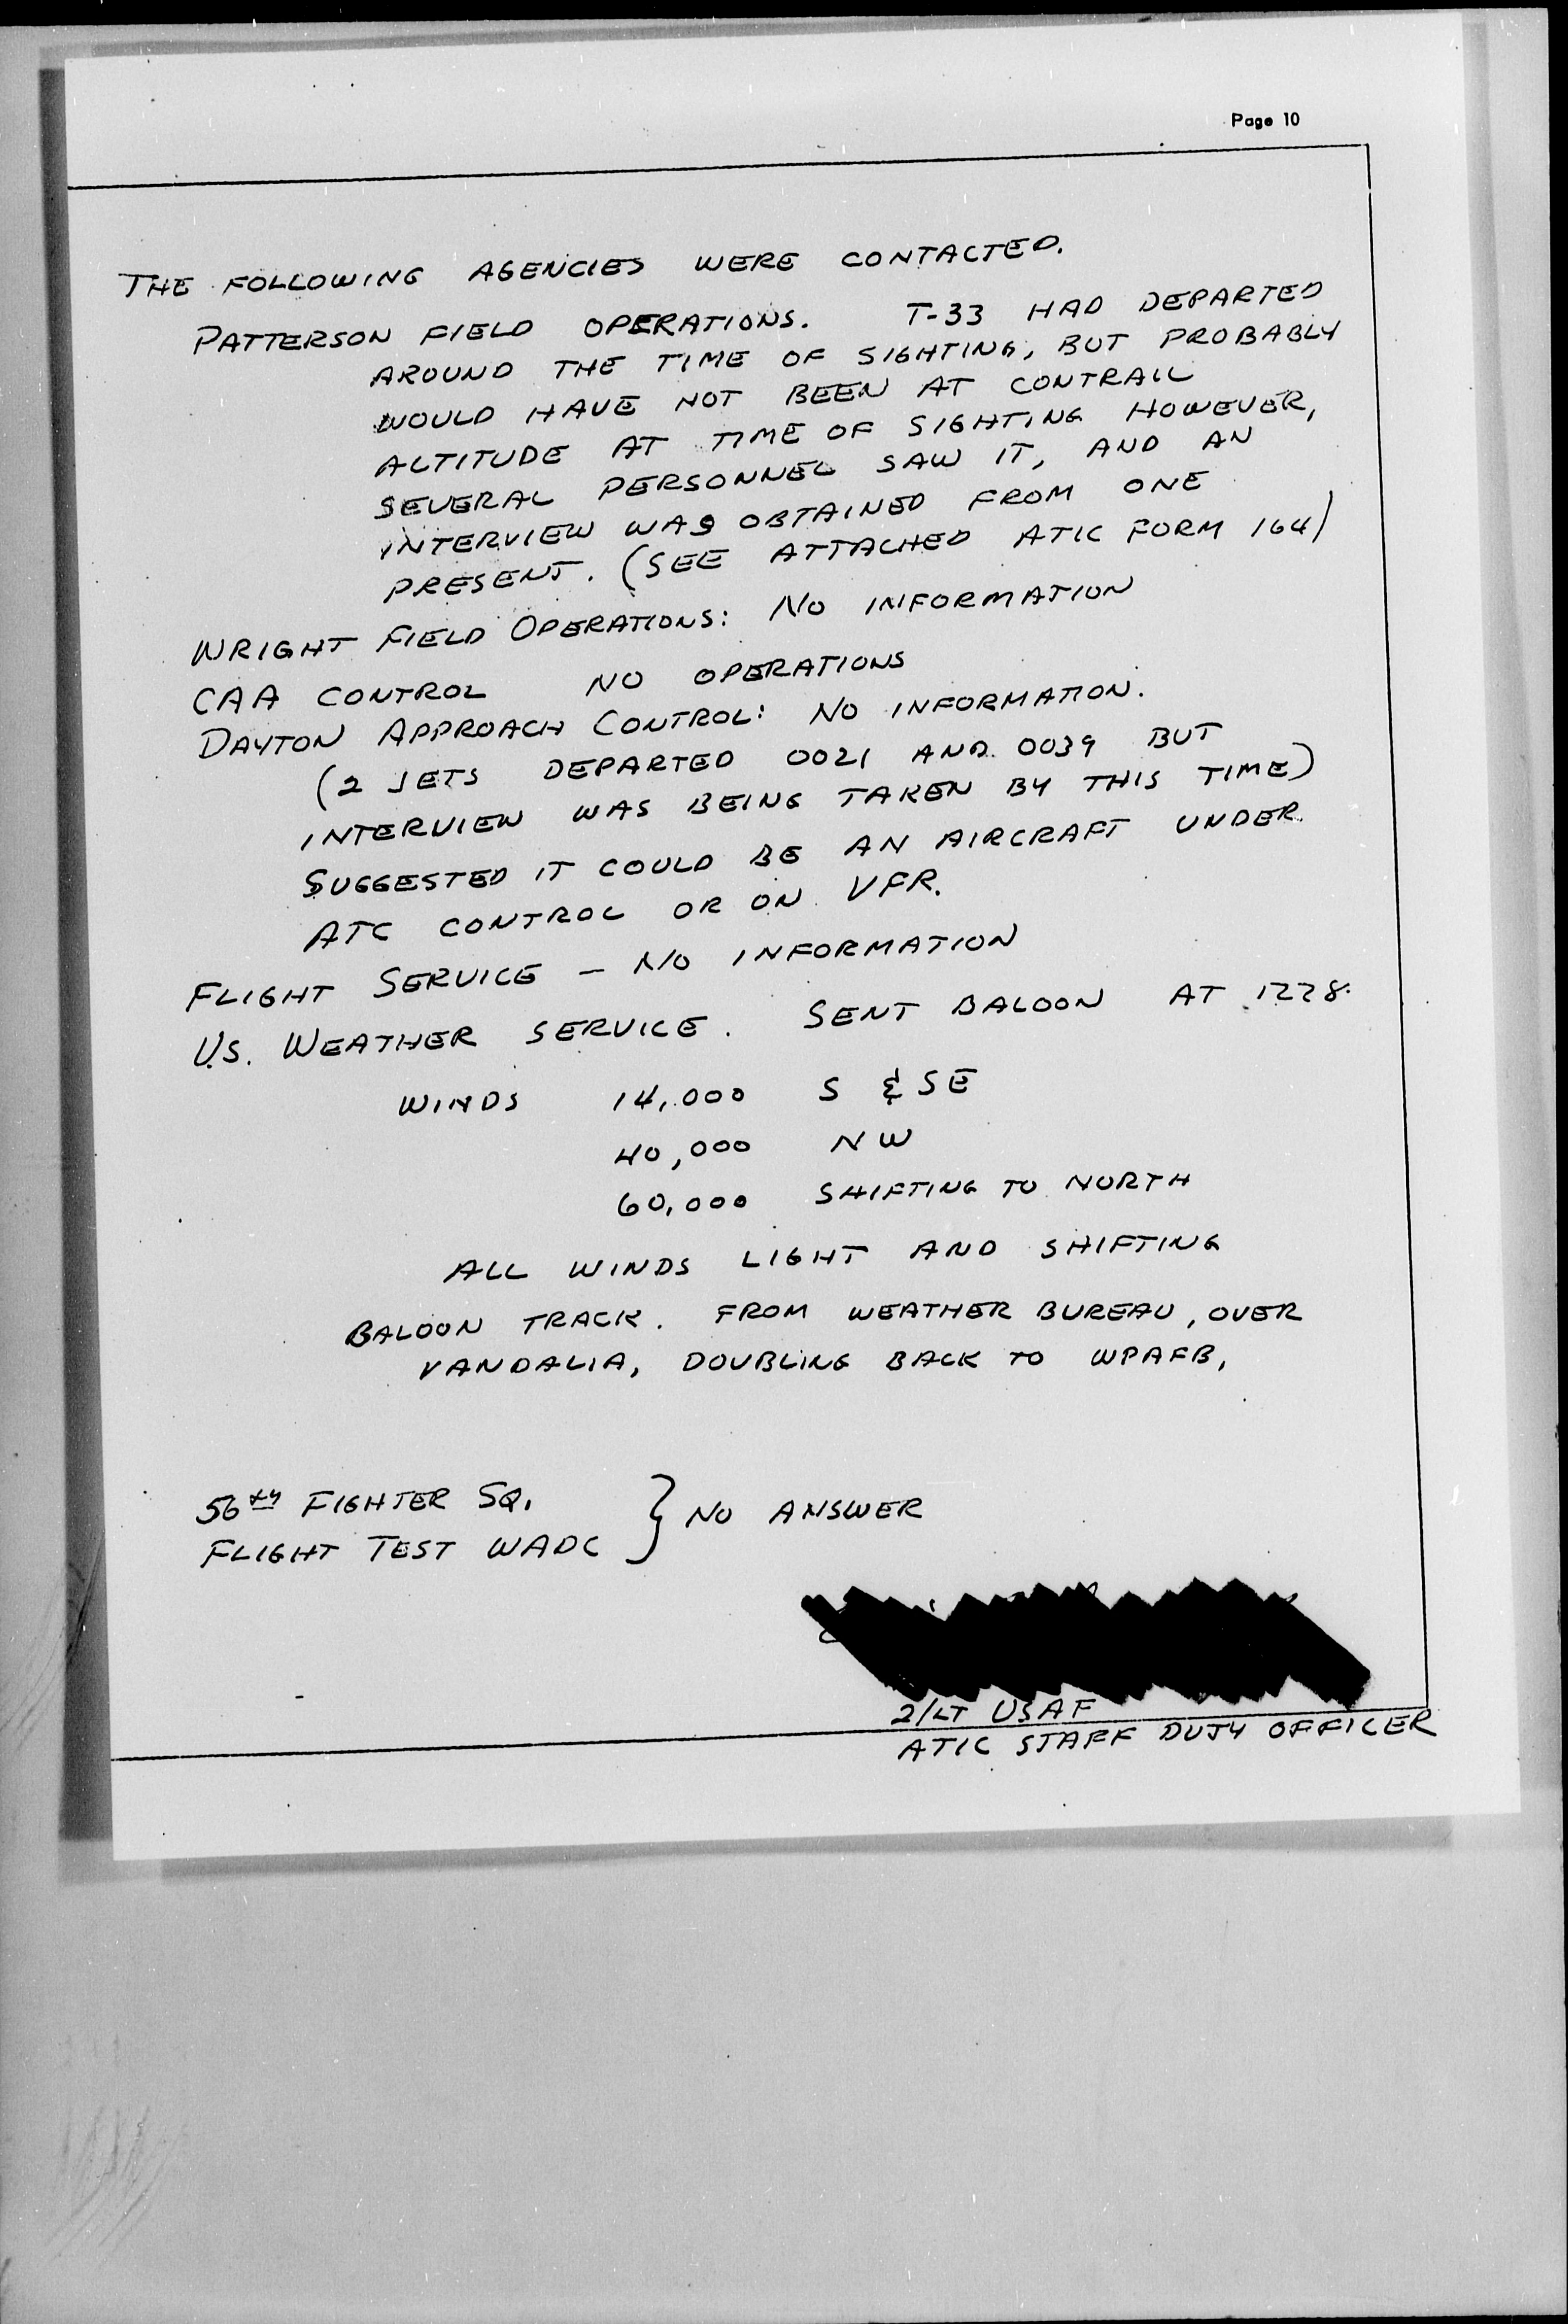 Page 10
THE FOLLOWING AGENCIES WERE CONTACTED.
PATTERSON FIELD OPERATIONS. T-33 HAD DEPARTED
AROUND THE TIME OF SIGHTING, BUT PROBABLY
WOULD HAVE NOT BEEN AT CONTRAIL
ALTITUDE AT TIME OF SIGHTING HOWEVER,
SEVERAL PERSONNEL SAW IT, AND AN
INTERVIEW WAS OBTAINED FROM ONE
PRESENT. (SEE ATTACHED ATIC FORM 164)
WRIGHT FIELD OPERATIONS: NO INFORMATION
CAA CONTROL NO OPERATIONS
DAYTON APPROACH CONTROL: NO INFORMATION.
(2 JETS DEPARTED 0021 AND 0039 BUT
INTERVIEW WAS BEING TAKEN BY THIS TIME)
SUGGESTED IT COULD BE AN AIRCRAFT UNDER
ATC CONTROL OR ON VFR.
FLIGHT SERVICE - NO INFORMATION
U.S. WEATHER SERVICE. SENT BALOON AT 1228.
WINDS 14,000 S & SE
40,000 NW
60,000 SHIFTING TO NORTH
ALL WINDS LIGHT AND SHIFTING
BALOON TRACK. FROM WEATHER BUREAU, OVER
VANDALIA, DOUBLING BACK TO WPAFB,
56th FIGHTER SQ.
FLIGHT TEST WADC } NO ANSWER
2/LT USAF
ATIC STAFF DUTY OFFICER